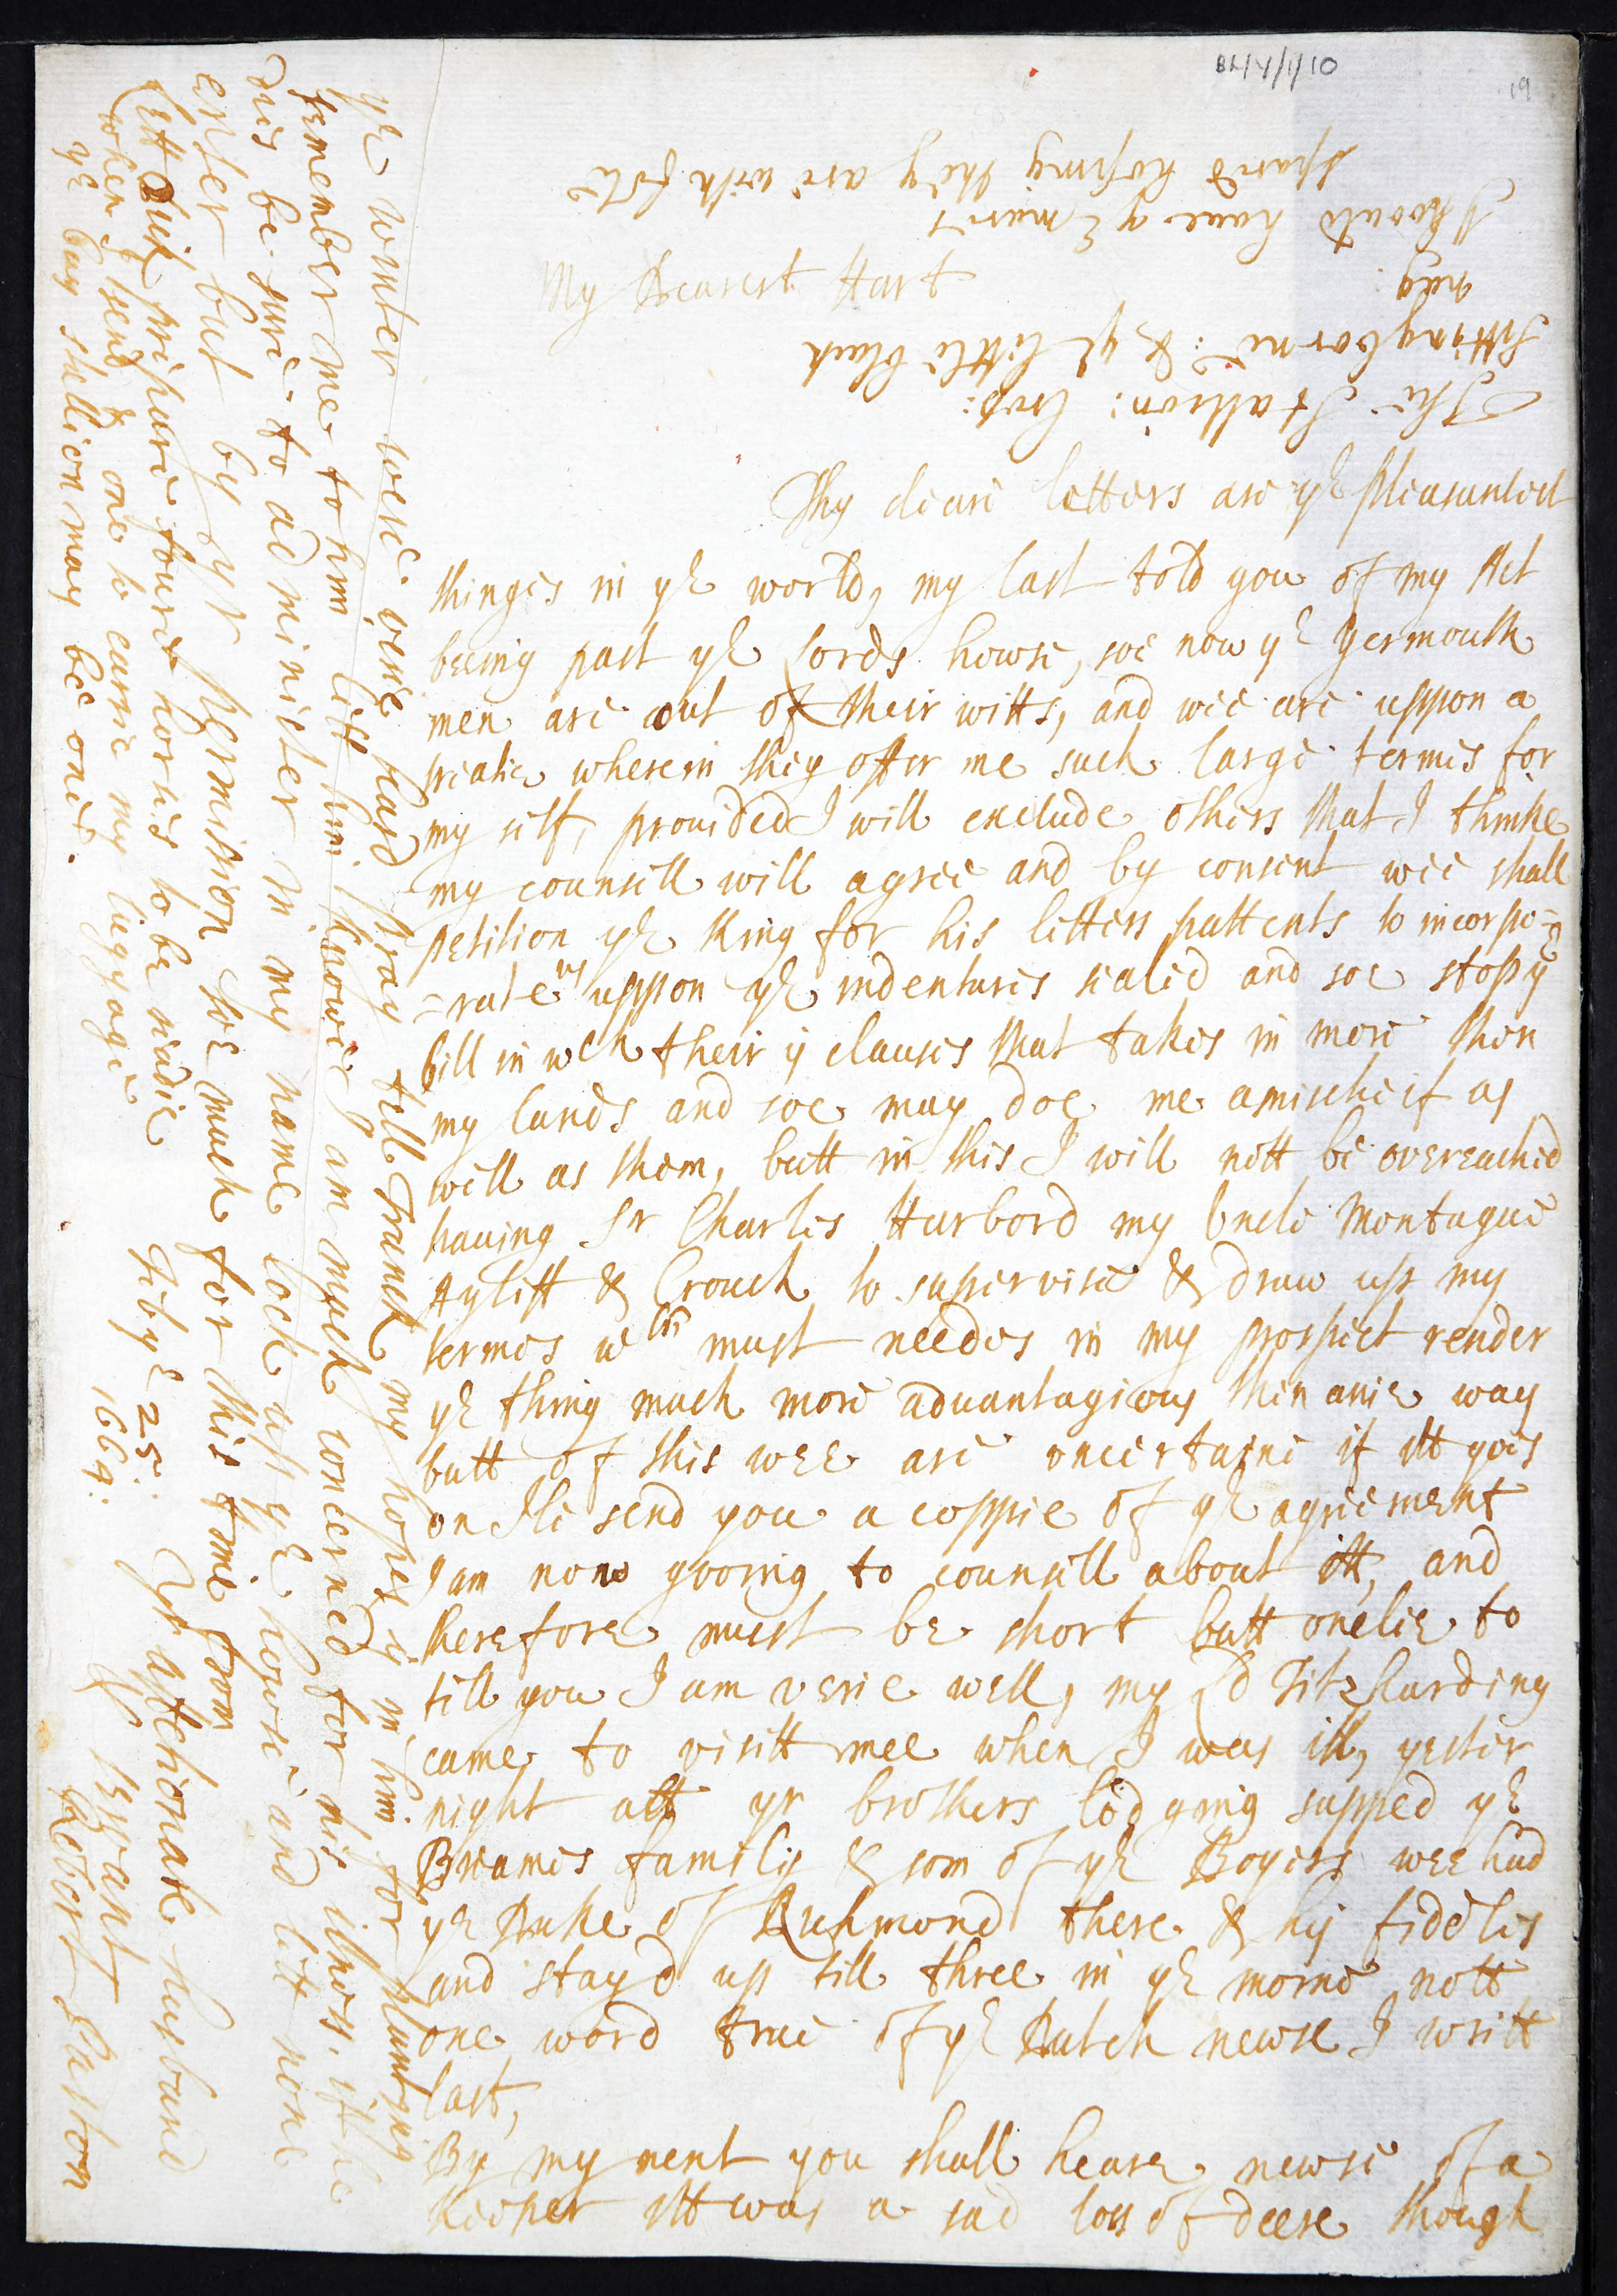 BL/Y/1/10
19
My Dearest Hart
Thy deare letters are yE pleasantest
thinges in yE world, my last told you of my Act
beeing past yE Lords howse, soe now yE Yermouth
men are out of their witts, and wee are uppon a
treatie wherein they offer me such large termes for
my self, prouided I will exclude others that I thinke
my counsell will agree and by consent wee shall
petition yE King for his letters pattents to incorpo=
=rate us uppon yE indentures sealed and soe stop yE
bill in wch their is clauses that takes in more then
my lands and soe may doe me a mischeif as
well as them, butt in this I will nott be overeached
hauing Sr Charles Harbord my Uncle Montague
Ayliff & Crouch to supervise & draw up my
termes wch must needes in my prospect render
yE thing much more aduantagious then anie way
butt of this wee are uncertaine if itt goes
on Ile send you a coppie of yE agreement
I am now gooing to counsell about itt, and
therefore must be short butt onelie to
tell you I am verie well, my Ld Fitzharding
came to visitt mee when I was ill, yester
night att yr brothers lodging supped yE
family & som of yE wee had
yE Duke of Richmond there & his fideles
and stayd up till three in yE morne nott
one word true of yE Dutch newse I writt
last,
By my next you shall heare newse of a
Keeper itt was a sad loss of deere though
yE winter were verie hard pray tell Franck my hopes is in him for
remember me to him lett him knowe I am much concerned for his if he
dus be sure to administer in my name lock up yE howse and lett none
enter but by yr permission soe much for this time from
lett prepare foure horses to be readie
when I send & one to carrie my liggage
yE bay stellion may be one.
Yr affectionate husband
& servant
Robert Paston
Feb yE 25:
1664:
The Stalion: Crop:
Sittingborne: & yE little black
nag:
I would have yE mares
spared hoping they are with fole